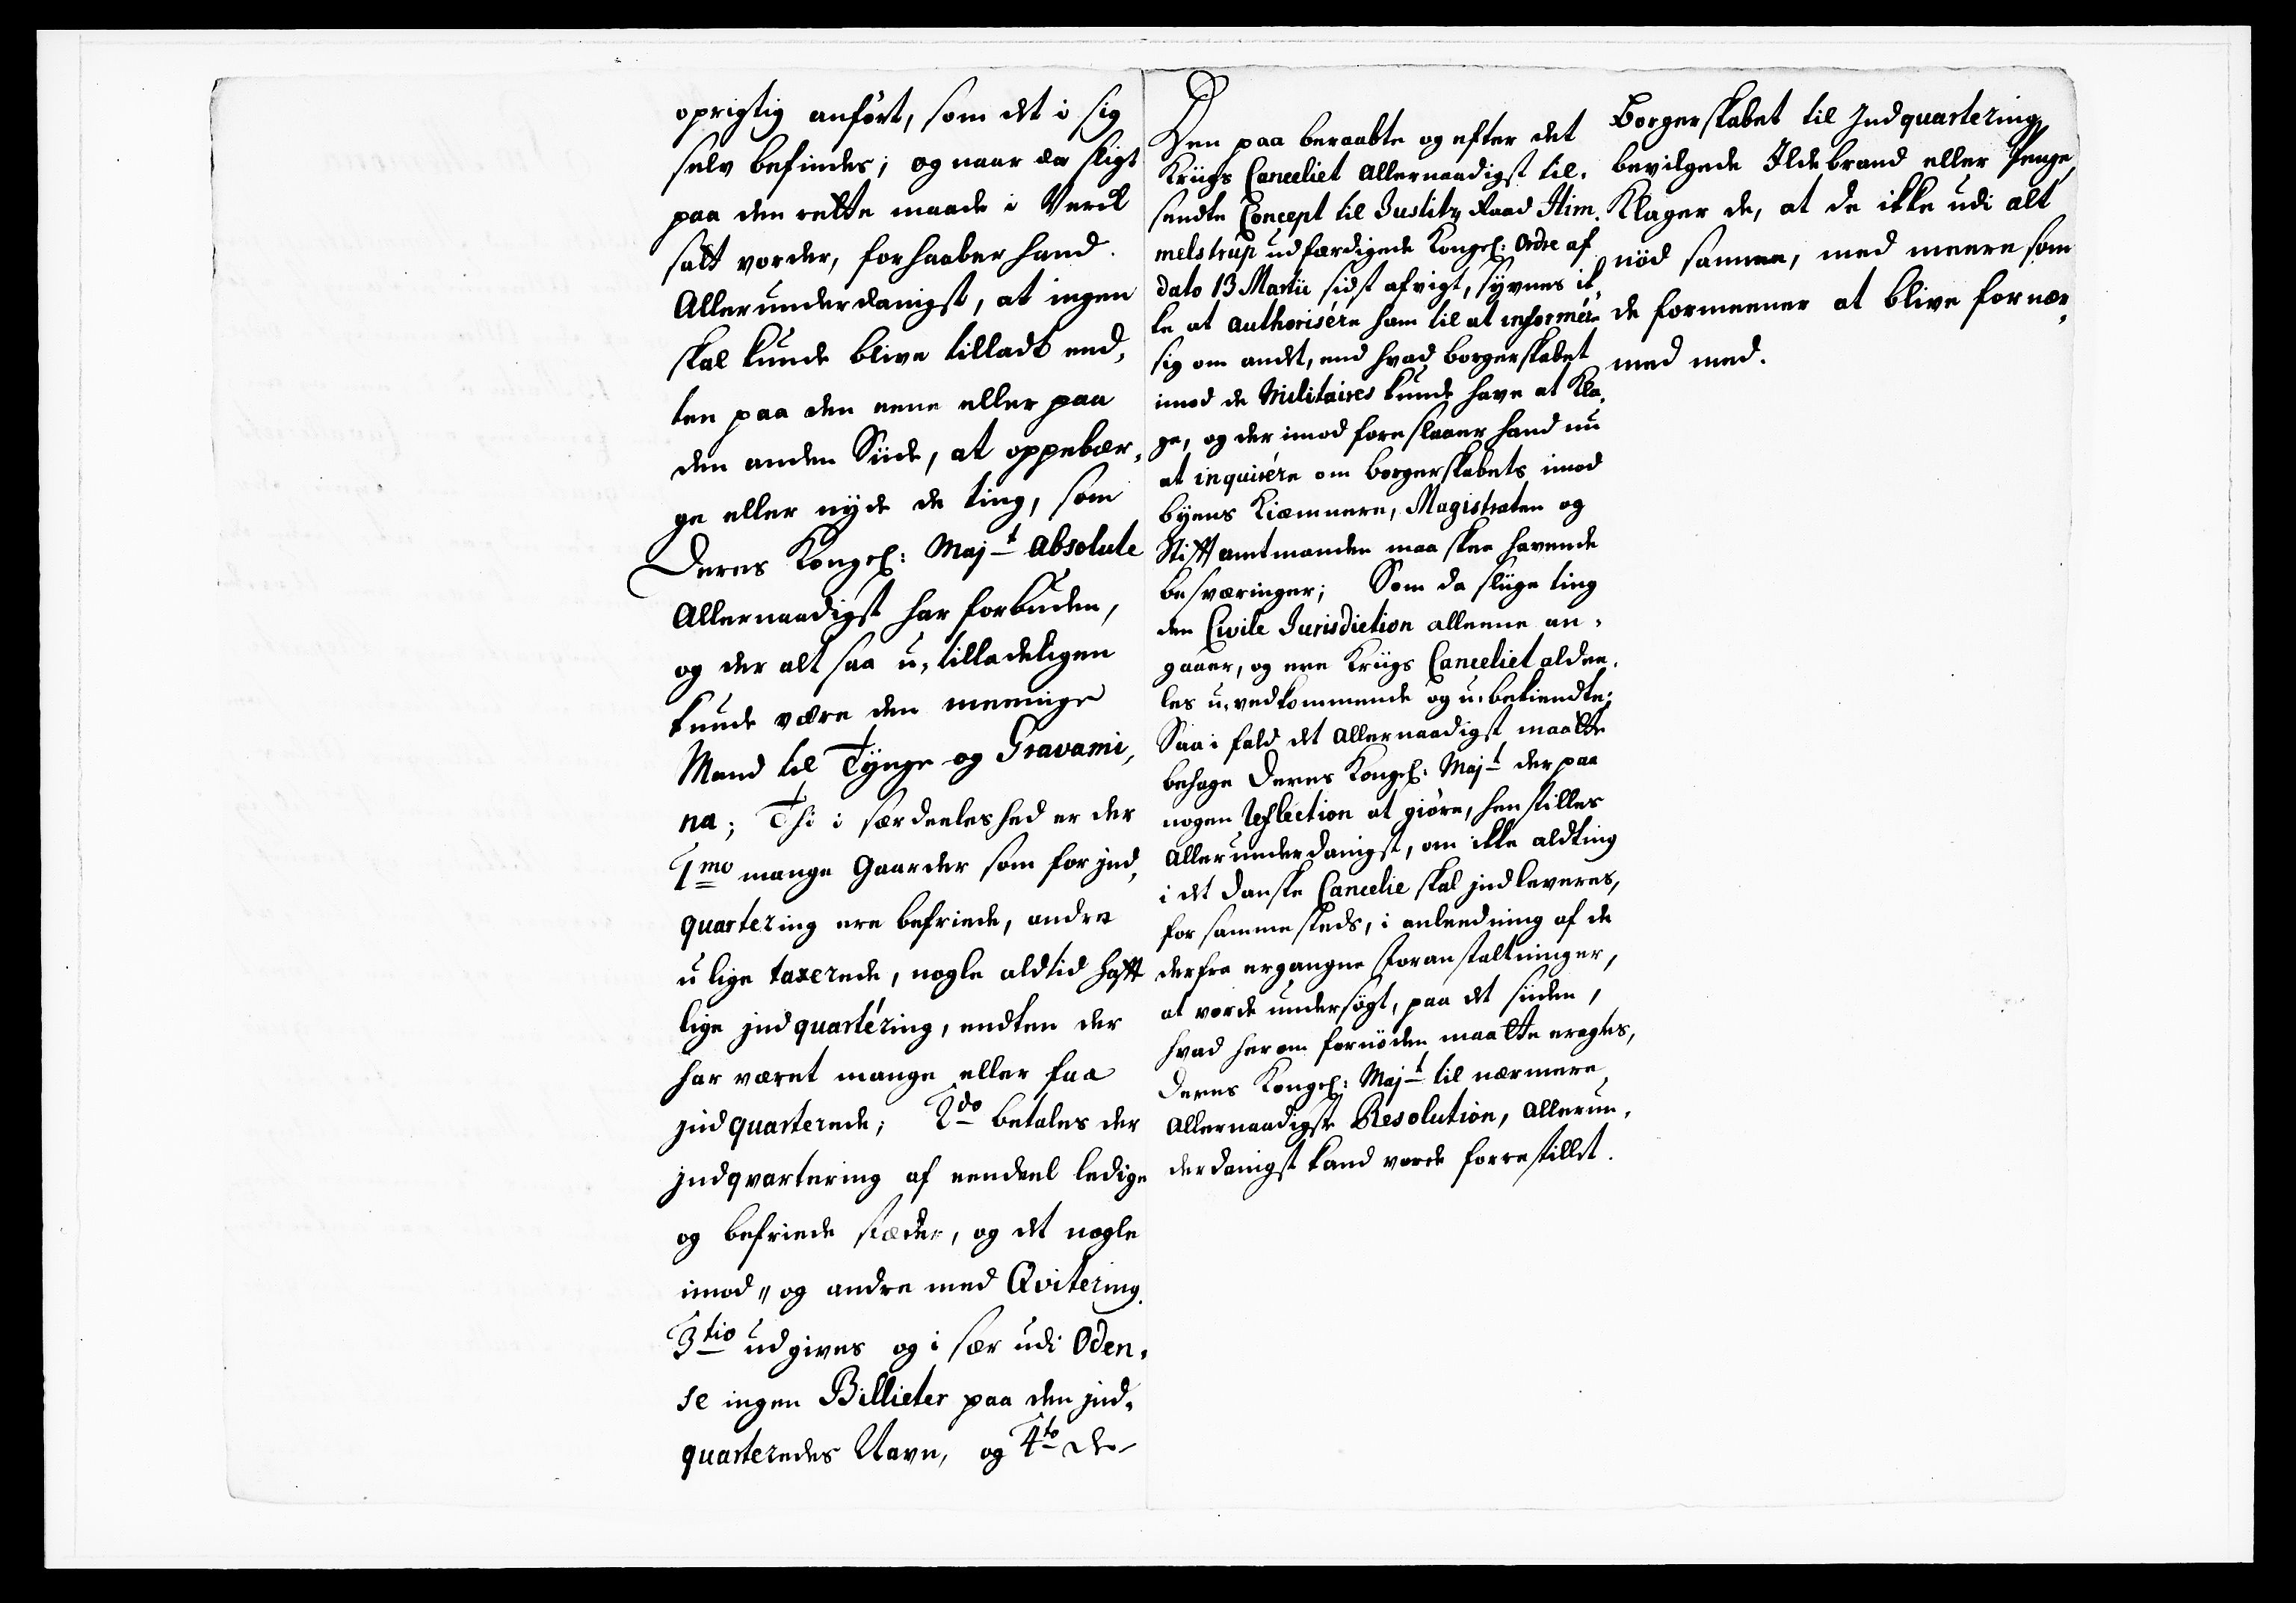 oprigtig anført, som det i sig
selv befindes; og naar da sligt
paa den rette maade i Verck
satt vorder, forhaaber hand
Allerunderdanigst, at ingen
skal kunde blive tilladt end,
ten paa den eene eller paa
den anden Siide, at oppebær,
ge eller nyde de ting, som
Deres Kongel: Maj-t absolute
Allernaadigst har forbuden,
og der alt saa u, tilladeligen
kunde være den meenige
Mand til Tynge og Gravami,
na; Thi i særdeeleshed er der
1mo mange Gaarder som for jnd,
quartering ere befriede, andre
ulige taxerede, nogle aldtid hafft
lige jndquartéring, endten der
har været mange eller faa
jndquarterede; 2do betales der
jndqvartering af eendeel ledige
og befriede stæder, og det nogle
imod,, og andre med Qvitering.
3tio udgives og i sær udi Oden,
se ingen Billieter paa den jnd,
quarteredes Navn, og 4to de
Den paa beraabte og efter det
Kriigs Canceliet Allernaadigst til,
sendte Concept til Justitz Raad Him,
melstrup udfærdigede Kongel: Ordre af
dato 13 Martii sidst afvigt, synes ik,
ke at authorisére ham til at informére
sig om andet, end hvad borgerskabet
imod de Militaires kunde have at Kla,
ge, og der imod foreslaaer hand nu
at inquisére om borgerskabets imod
byens Kiæmnere, Magistraten og
Stifftamtmanden maa skee havende
besværinger; Som da sliige ting
den Civile Jurisdiction alleene an,
gaaer, og ere Kriigs Canceliet aldee,
les u, vedkommende og u, bekiendte;
Saa i fald det allernaadigst maatte
behage Deres Kongel: Maj-t der paa
nogen Reflection at giøre, henstilles
allerunderdanigst, om ikke aldting
i det danske Cancelie skal jndleveres,
for sammesteds, i anleedning af de
derfra ergangne foranstaltninger,
at vorde undersøgt, paa det siiden,
hvad herom fornøden maatte eragtes,
Deres Kongel: Maj-t til nærmere
Allernaadigste Resolution, allerun,
derdanigst kand vorde forrestillet.
Borgerskabet til Jndquartering
bevilgede Ildebrand eller Penge,
Klager de, at de ikke udi alt
nød samme, med meere som
de formeener at blive fornær,
med med.